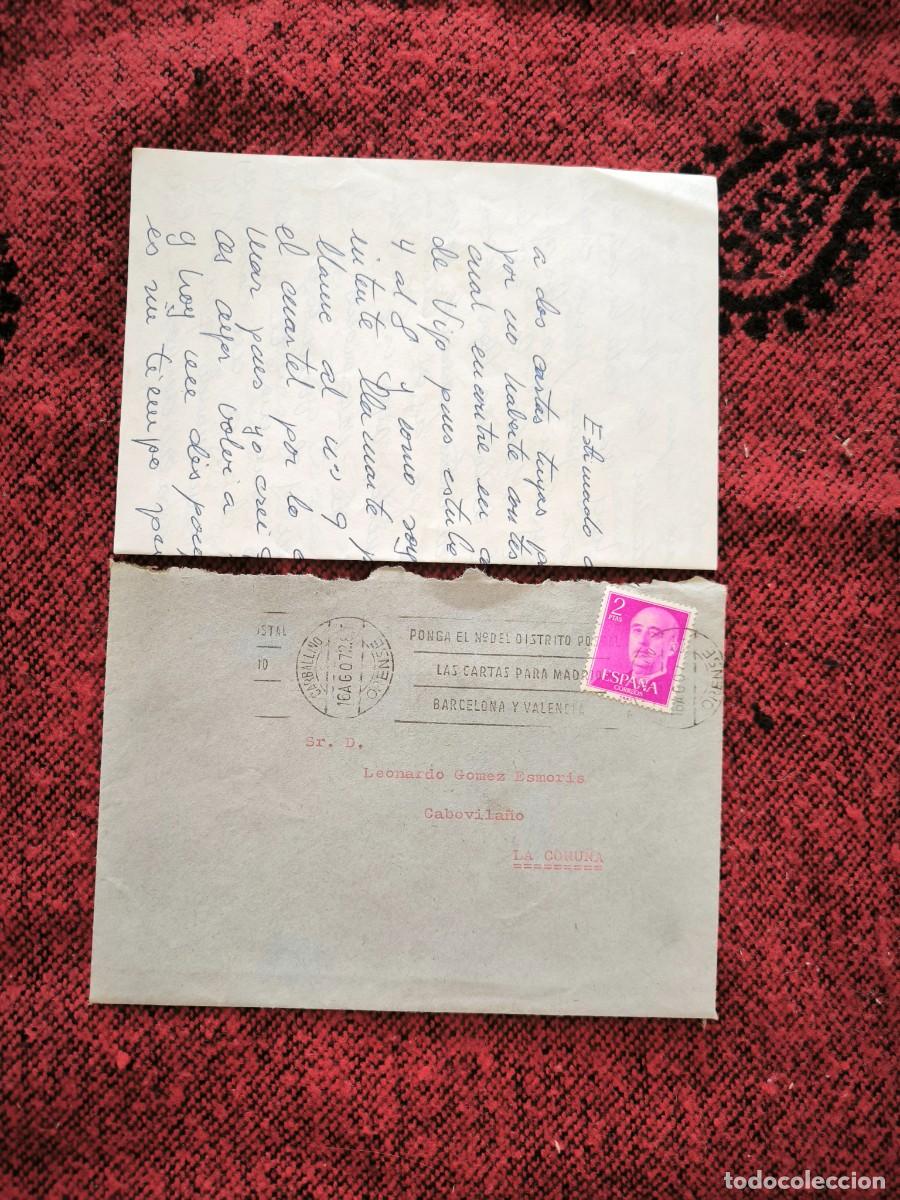 Estimado
a dos cartas tuyas
por no haberte contes
cual encontre en
de Vigo pues estube
y al 8 y como soy
mitente llamante
llame al nº 9
el cuartel por lo
mar pues yo crei
ces ayer volvi a
y hoy me dis pon
es mi tiempo
OSTAL
10
CARBALLINO
16AGO72
ORENSE
PONGA EL Nº DEL DISTRITO POSTAL
LAS CARTAS PARA MADRID
BARCELONA Y VALENCIA
2
PTAS
ESPAÑA
CORREOS
16AGO7
ORENSE
Sr. D.
Leonardo Gomez Esmoris
Cabovilaño
LA CORUÑA
=========
todocoleccion